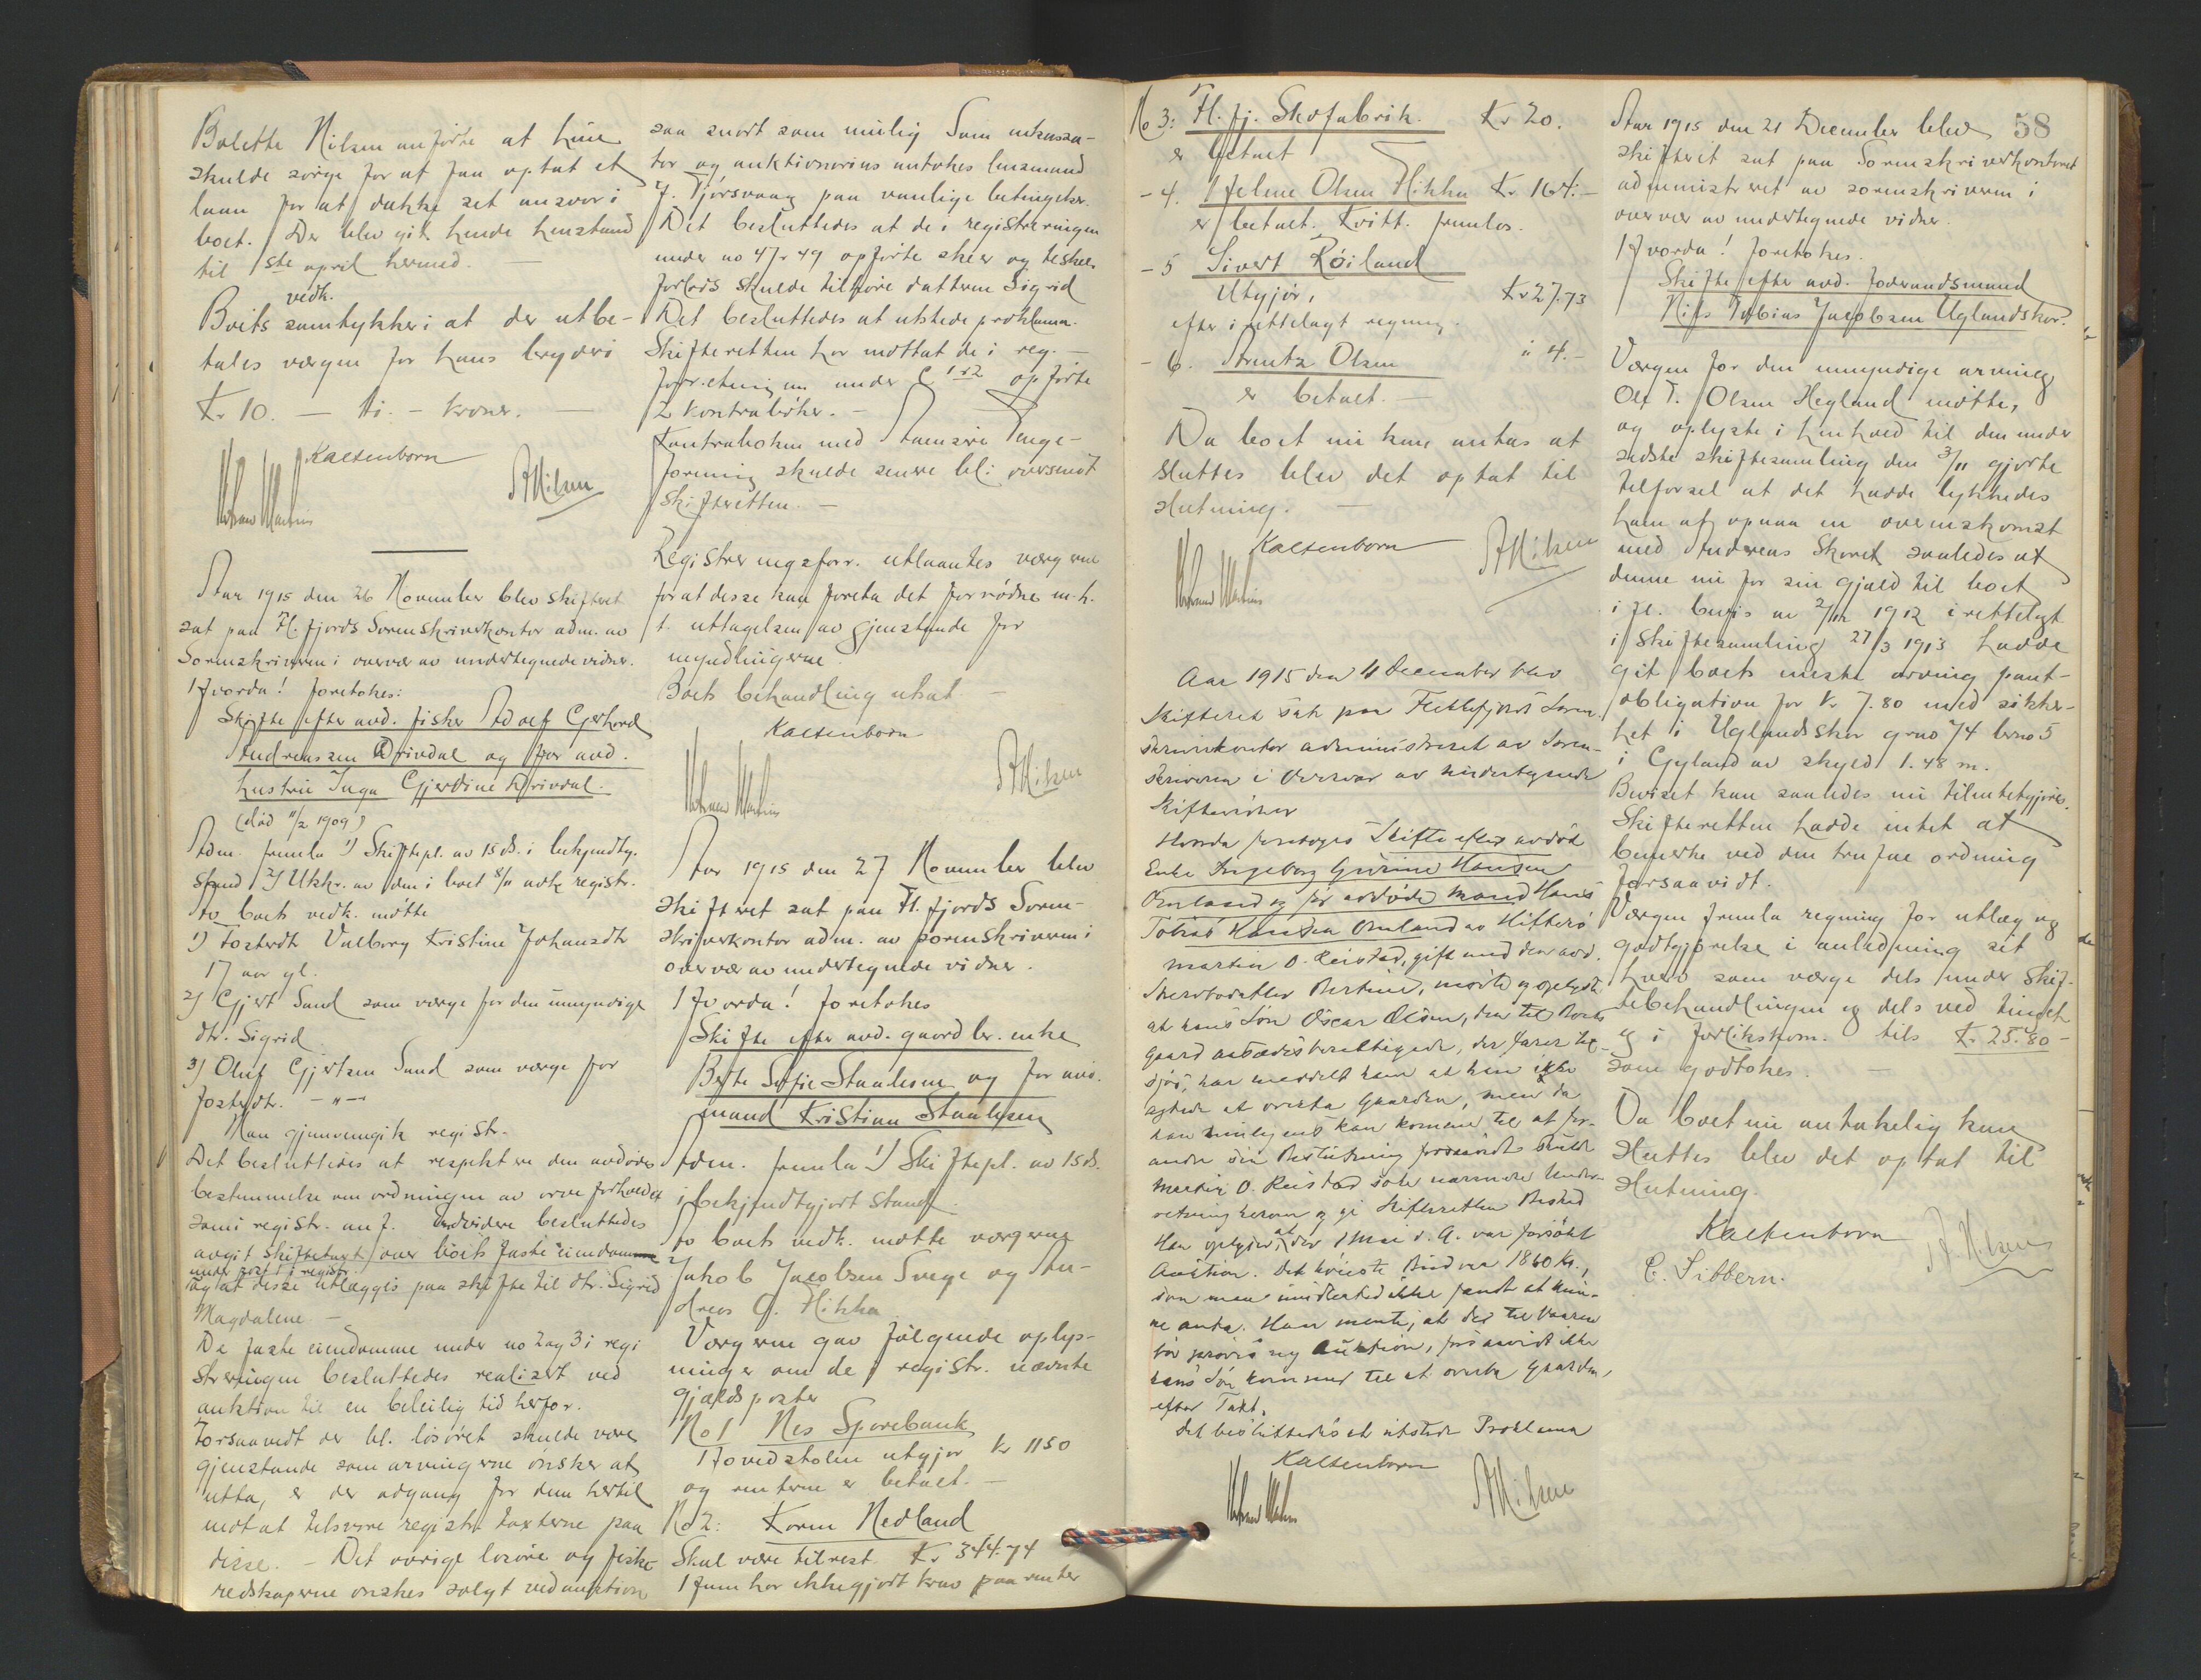 Bolette Nilsen anførte at hun
skulde sørge for at faa optat et
laan for at dække sit ansvar i
boet. Der blev git hende henstand
til 1ste april hermed. —
Boets vedk. samtykker i at der utbe-
tales værgen for hans bryderi
Kr 10. — ti. – kroner. —
Kaltenborn
A Nilsen
Aar 1915 den 26 November blev skifteret
sat paa Fl.fjords Sorenskriverkontor adm. av
Sorenskriveren i overvær av undertegnede vidner.
Hvorda! foretokes:
Skifte efter avd. fisker Adolf Gerhard
Andreassen Drivdal og før avd.
hustru Inga Gjerdine Drivdal.
(død 11/2 1909)
Adm. framla 1) Skiftepl. av 15 ds. i bekjendtg.
stand 2) Utskr. av den i boet 8/11 avh. registr.
Av boets vedk. møtte
1) Fosterdtr Valborg Kristine Johansdtr
17 aar gl.
2) Gjert Sand som værge for den umyndige
dtr. Sigrid
3) Oluf Gjertsen Sand som værge for
fosterdtr. — " —
Man gjennemgik registr.
Det besluttedes at respektere den avdødes
bestemmelse om ordningen av arveforholdet
som i registr. anf. Endvidere besluttedes
avgit skiftetakst over boets faste eiendomme
under post 1 i registr.
og at disse utlægges paa skifte til dtr. Sigrid
Magdalene —
De faste eiendomme under no 2 og 3 i regi
streringen besluttedes realisert ved
auktion til en beleilig tid herfor.
Forsaavidt der bl. løsøret skulde være
gjenstande som arvingerne ønsker at
utta, er der adgang for dem hertil
mot at tilsvare registr. taxterne paa
disse. — Det øvrige løsøre og fiske-
redskaperne ønskes solgt ved auktion
saa snart som mulig Som inkassa-
tor og auktionarius antokes lensmand
J. Tjørsvaag paa vanlige betingelser.
Det besluttedes at de i registreringen
under no 47 & 49 opførte skeer og teskeer
forlods skulde tilhøre datteren Sigrid
Det besluttedes at utstede proklama.
Skifteretten har mottat de i reg. —
forretningen under C 1 & 2 opførte
2 kontrabøker. —
Kontraboken med Aamsire Penge-
forening skulde senere bli oversendt
skifteretten. —
Registreringsforr. utlaantes værgerne
for at disse kan foreta det fornødne m.h.
t. uttagelsen av gjenstande for
myndlingerne.
Boets behandling utsat. —
Kaltenborn
A Nilsen
Aar 1915 den 27 November blev
skifteret sat paa Fl.fjords Soren-
skriverkontor adm. av sorenskriveren i
overvær av undertegnede vidner.
Hvorda! foretokes
Skifte efter avd. gaardbr. enke
Berte Sofie Staalesen og før avd.
mand Kristian Staalesen
Adm. framla 1) Skiftepl. av 15 ds.
i bekjendtgjort stand.
Av boets vedk. møtte værgerne
Jakob Jacobsen Svege og An-
dreas G. Hikka
Værgerne gav følgende oplys-
ninger om de i registr. nævnte
gjældsposter
No 1 Nes Sparebank
Hovedstolen utgjør Kr 1150
og renterne er betalt. —
No 2: Karen Nedland
Skal være tilrest. Kr 344.74
Hun har ikke gjort krav paa renter
No 3: Fl. fj. Skofabrik. Kr 20.
er betalt
- 4. Helene Olsen Hikka Kr 164.—
er betalt. Kvitt. framlas.
- 5 Sivert Røiland
Utgjør, Kr 27.73
efter i rettelagt regning.
- 6. Arentz Olsen " 4.—
er betalt. —
Da boet nu kan antas at
sluttes blev det optat til
slutning. —
Kaltenborn
A Nilsen
Aar 1915 den 11 December blev
Skifteret sat paa Flekkefjords Soren-
skriverkontor administreret av Soren-
skriveren i Overvær av undertegnede
Skiftevidner
Hvorda foretoges Skifte efter avdøde
Enke Ingeborg Gurine Hansen
Omland og før avdøde Mand Hans
Tobias Hansen Omland av Hitterø
Martin O. Reistad, gift med den avd.
Stervbodatter Bertine, møtte og oplyste
at hans Søn Oscar Olsen, den til Boets
Gaard aasædesberettigede, der farer til
sjøs, har meddelt ham at han ikke
agtede at overta Gaarden, men da
han muligens kan komme til at for-
andre sin Beslutning forsaavidt skulde
Martin O. Reistad søke nærmere Under-
retning herom og gi Skifteretten Besked
Han oplyser at der 1 Mai d. A. var forsøkt
Auktion. Det høieste Bud var 1860 Kr.,
som man imidlertid ikke fandt at kun-
ne anta. Han mente, at der til Vaaren
bør prøves ny Auktion, forsaavidt ikke
hans Søn kommer til at overta Gaarden,
efter Takt.
Det besluttedes at utstede Proklama
Kaltenborn
A Nilsen
58
Aar 1915 den 21 December blev
skifteret sat paa Sorenskriverkontoret
administreret av sorenskriveren i
overvær av undertegnede vidner.
Hvorda! foretokes.
Skifte efter avd. foderaadsmand
Nils Tobias Jacobsen Uglandskor.
Værgen for den umyndige arving
Olf T. Olsen Hegland møtte,
og oplyste i henhold til den under
sidste skiftesamling den 3/11 gjorte
tilførsel at det hadde lykkedes
ham at opnaa en overenskomst
med Andreas Skoret saaledes at
denne nu for sin gjæld til boet
i fl. bevis av 2/11 1912 irettelagt
i skiftesamling 27/3 1913 hadde
git boets eneste arving pant-
obligation for Kr 780 med sikker-
het i Uglandskor gno 74 brno 5
i Gyland av skyld 1.48 m.
Beviset kan saaledes nu tilintetgjøres.
Skifteretten hadde intet at
bemerke ved den trufne ordning
forsaavidt.
Værgen framla regning for utlæg og
godtgjørelse i anledning sit
hverv som værge dels under skif-
tebehandlingen og dels ved tinget
og i forlikskom. tils Kr 25.80 —
som godtokes. —
Da boet nu antakelig kan
sluttes blev det optat til
slutning.
Kaltenborn
A. Nilsen
E. Sibbern.